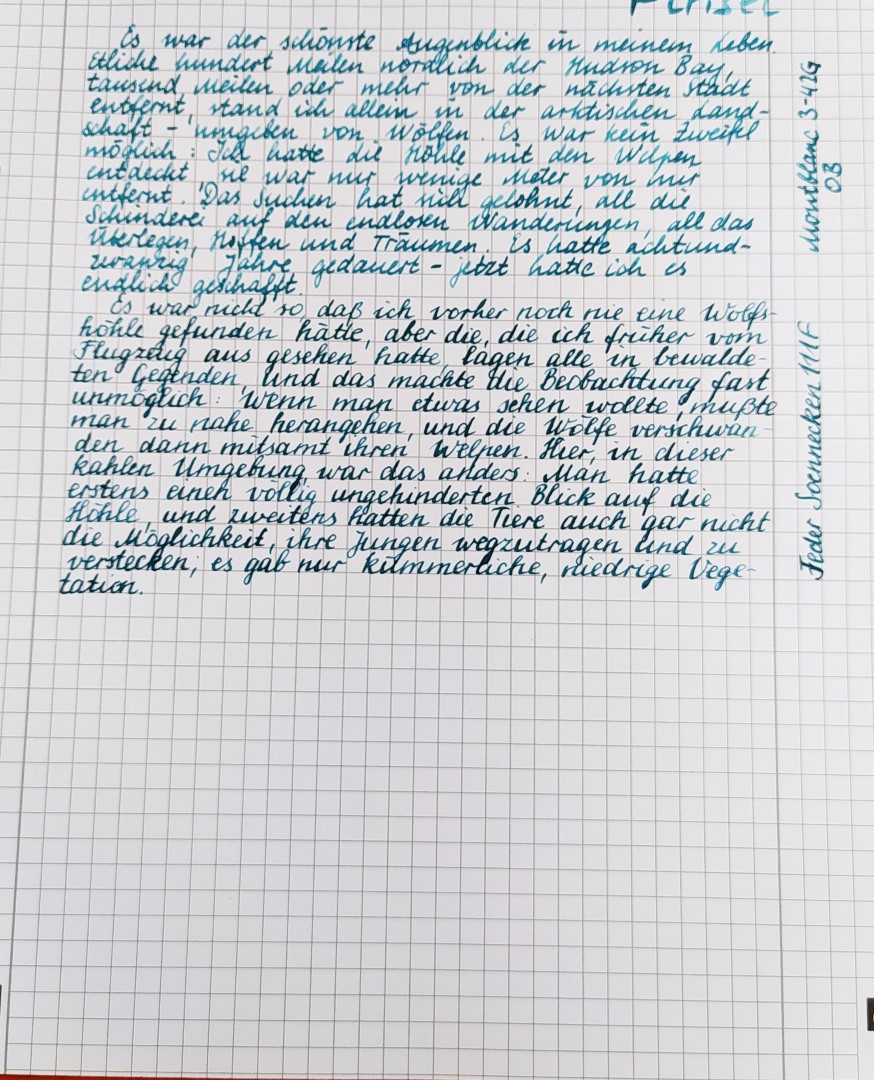 Pinsel
Es war der schönste Augenblick in meinem Leben.
Etliche hundert Meilen nördlich der Hudson Bay,
tausend Meilen oder mehr von der nächsten Stadt
entfernt, stand ich allein in der arktischen Land-
schaft – umgeben von Wölfen. Es war kein Zweifel
möglich: Ich hatte die Höhle mit den Welpen
entdeckt, sie war nur wenige Meter von mir
entfernt. Das Suchen hat sich gelohnt, all die
Schinderei auf den endlosen Wanderungen, all das
Überlegen, Hoffen und Träumen. Es hatte achtund-
zwanzig Jahre gedauert – jetzt hatte ich es
endlich geschafft.
Es war nicht so, daß ich vorher noch nie eine Wolfs-
höhle gefunden hätte, aber die, die ich früher vom
Flugzeug aus gesehen hatte, lagen alle in bewalde-
ten Gegenden, und das machte die Beobachtung fast
unmöglich: Wenn man etwas sehen wollte, mußte
man zu nahe herangehen, und die Wölfe verschwan-
den dann mitsamt ihren Welpen. Hier, in dieser
kahlen Umgebung, war das anders: Man hatte
erstens einen völlig ungehinderten Blick auf die
Höhle, und zweitens hatten die Tiere auch gar nicht
die Möglichkeit, ihre Jungen wegzutragen und zu
verstecken; es gab nur kümmerliche, niedrige Vege-
tation.
Montblanc 3-42G
OB
Feder Soennecken 111 F